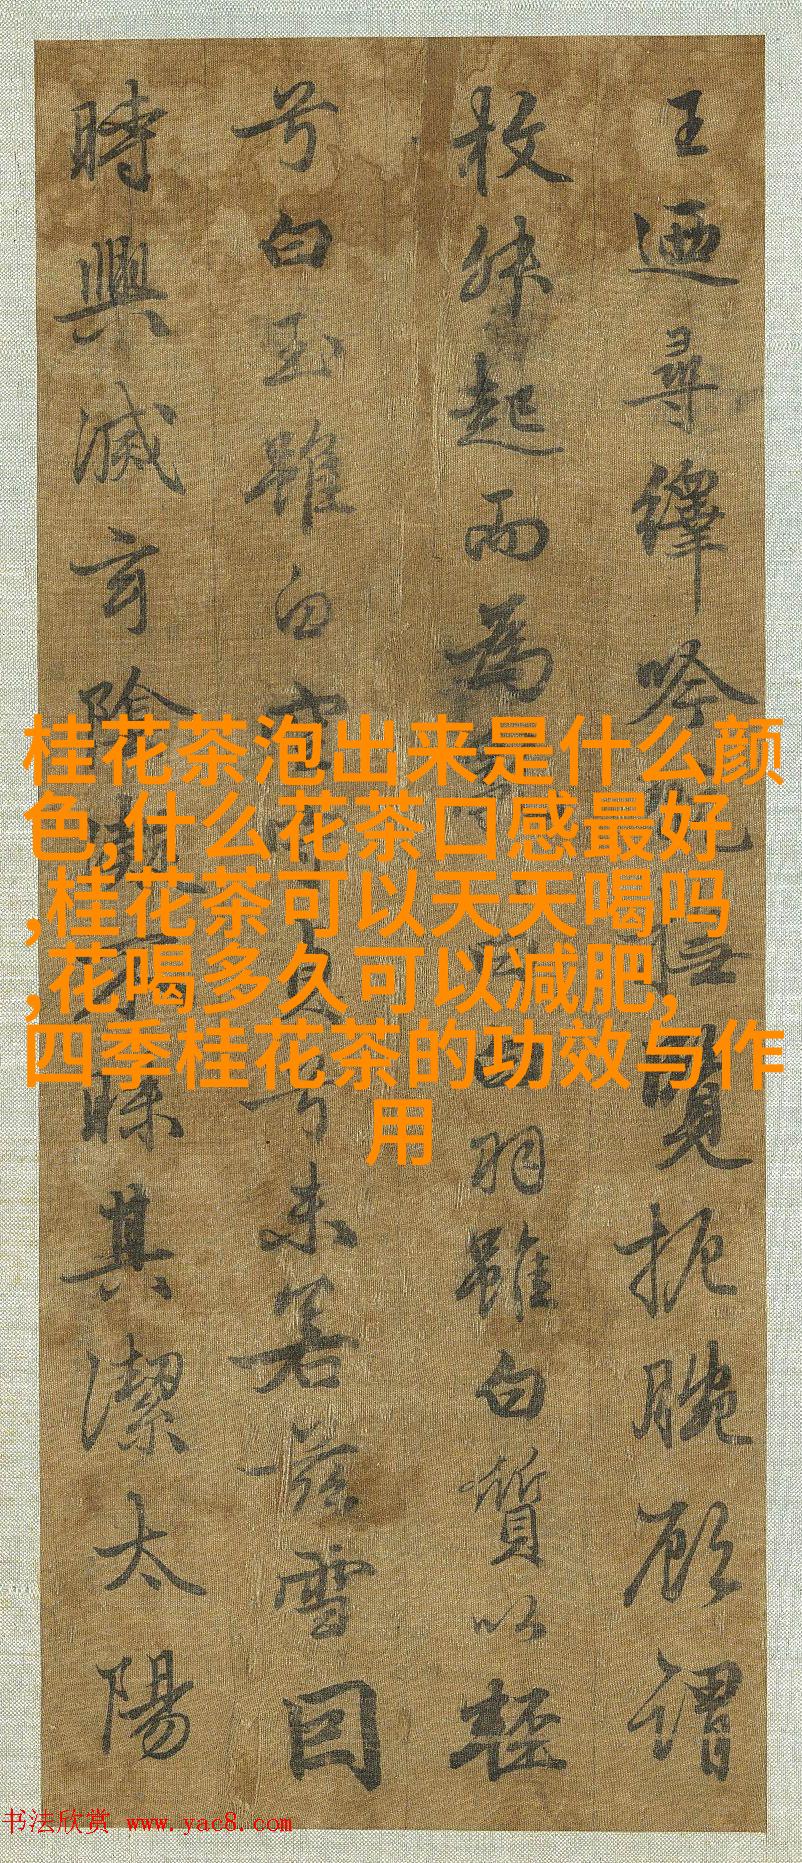 王迺尋繹吟覽扼腕顧謂
枚叔起而為白羽雖白質以輕
兮白玉雖白兮未若茲雪因
時興滅玄陰昧其潔太陽
桂花茶泡出来是什么颜
色,什么花茶口感最好
,桂花茶可以天天喝吗
,花喝多久可以减肥,
四季桂花茶的功效与作
用
书法欣赏 www.yac8.com